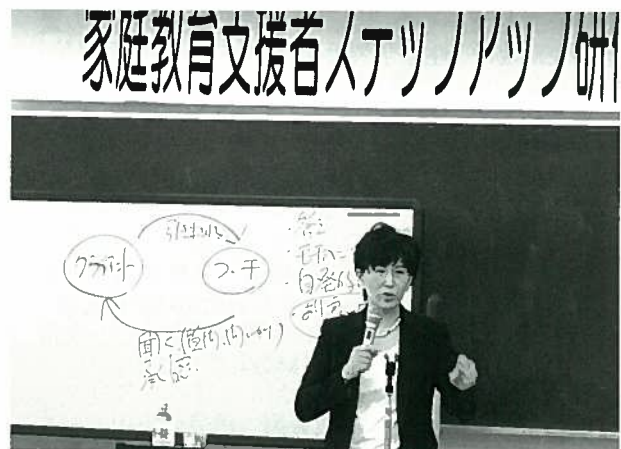 家庭教育支援者ステップアップ研
クライアント
コーチ
・自発的
聞く(質問、問いかけ)
承認